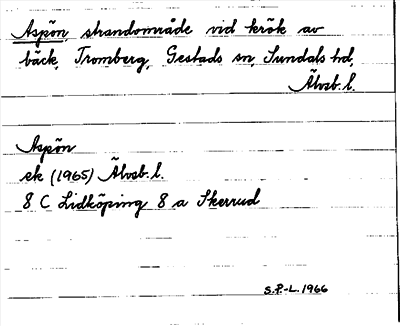 Aspön, strandområde vid krök av
bäck, Tromberg, Gestads sn, Sundals hd,
Älvsb. l.
Aspön
ek (1965) Älvsb. l.
8 C Lidköping 8 a Skerrud
S.P.-L. 1966